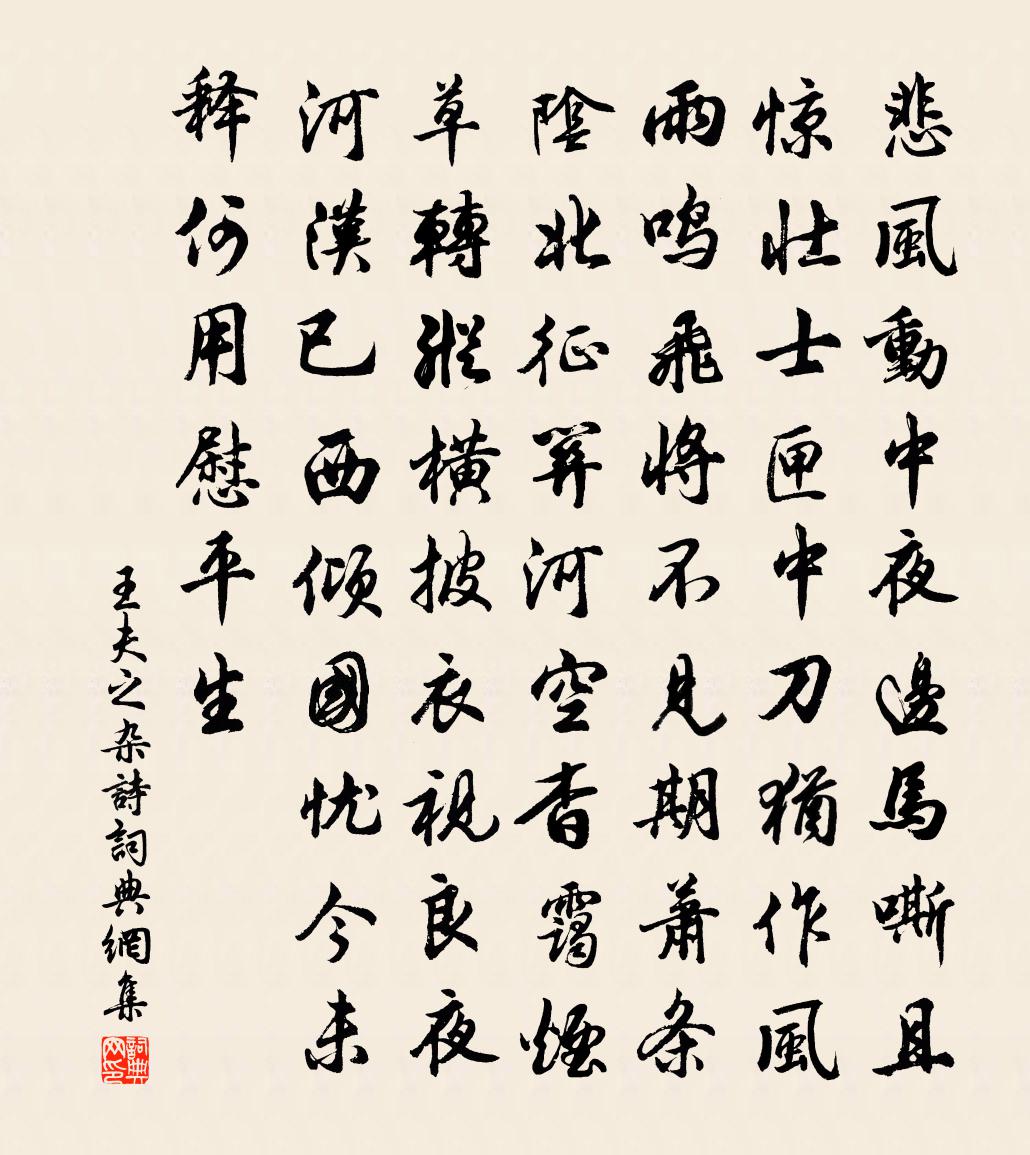 悲風動中夜邊馬嘶且
惊壯士匣中刀猶作風
雨鸣飛將不見期蕭条
陰北征關河空杳靄煙
草轉縱橫披衣視良夜
河漢已西傾國忧今未
释何用慰平生
王夫之杂詩詞典網集
詞典网印